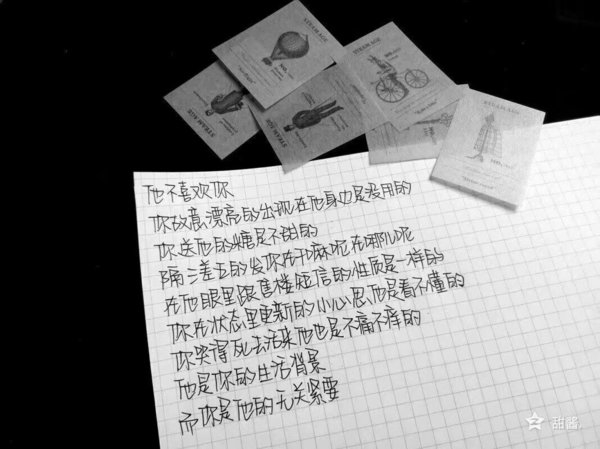 STEAM AGE
NO.
STEAM AGE
STEAM AGE
STEAM AGE
STEAM AGE
NO.
他不喜欢你
你故意漂亮的出现在他身边是没用的
你送他的糖是不甜的
隔三差五的发你在干嘛呢在哪儿呢
在他眼里跟售楼短信的性质是一样的
你在状态里更新的小心思他是看不懂的
你哭得死去活来他也是不痛不痒的
他是你的生活背景
而你是他的无关紧要
甜酱